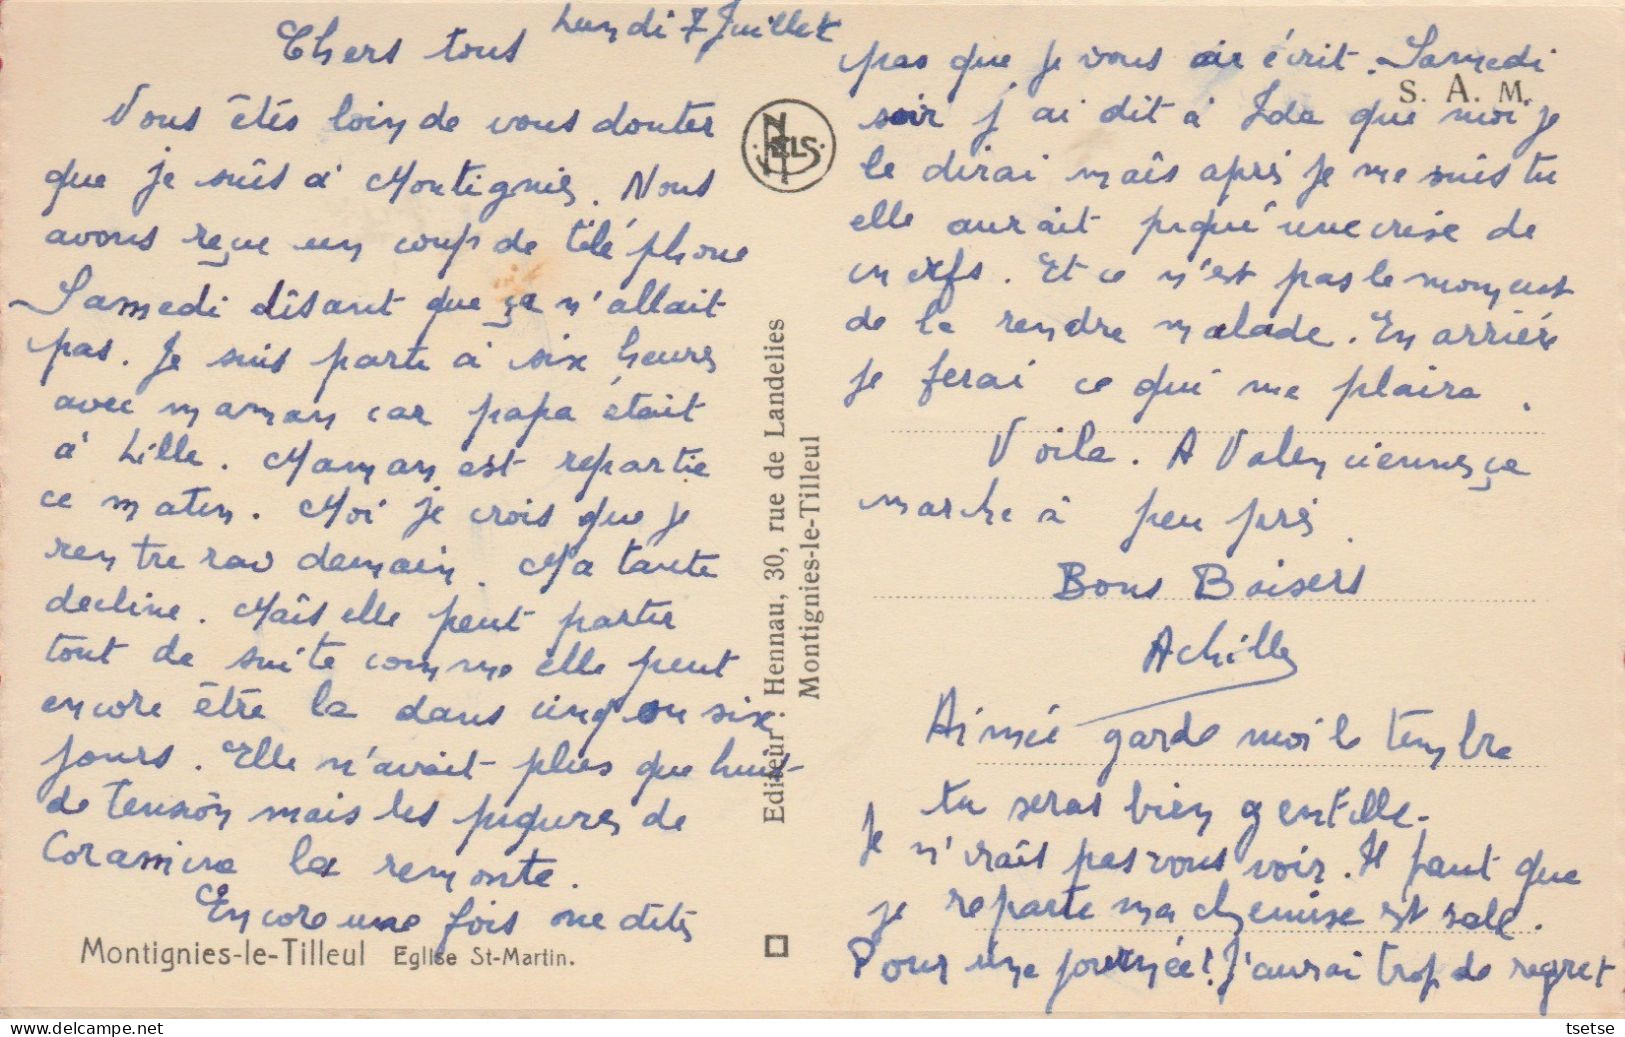 Lundi 7 Juillet
Chers tous
Vous êtés loin de vous douter
que je suîs à Montignies. Nous
avons reçue un coup de téléphone
Samedi dîsant que ça n'allait
pas. Je suis parti à six heures
avec maman car papa était
à Lille. Maman est repartie
ce matin. Moi je crois que je
rentrerai demain. Ma tante
decline. Maîs elle peut partir
tout de suite comme elle peut
encore être la dans cinq ou six
jours. Elle n'avait plus que huit
de tension mais les piqures de
Coramine la remonte.
Encore une fois ne dites
pas que je vous ai écrit. Samedi
soir j'ai dit à Ida que moi je
le dirai maîs après je me suis tu
elle aurait piqué une crise de
nerfs. Et ce n'est pas le moment
de la rendre malade. En arrière
je ferai ce qui me plaira.
Voila. A Valenciennes ça
marche à peu près.
Bons Baisers
Achille
Aimée garde moi le timbre
tu seras bien gentille.
Je n'irais pas vous voir. Il faut que
je reparte ma chemise est sale.
Pour une journée! J'aurai trop de regret
S. A. M.
NELS
Editeur: Hennau, 30, rue de Landelies
Montignies-le-Tilleul
Montignies-le-Tilleul Eglise St-Martin.
tsetse